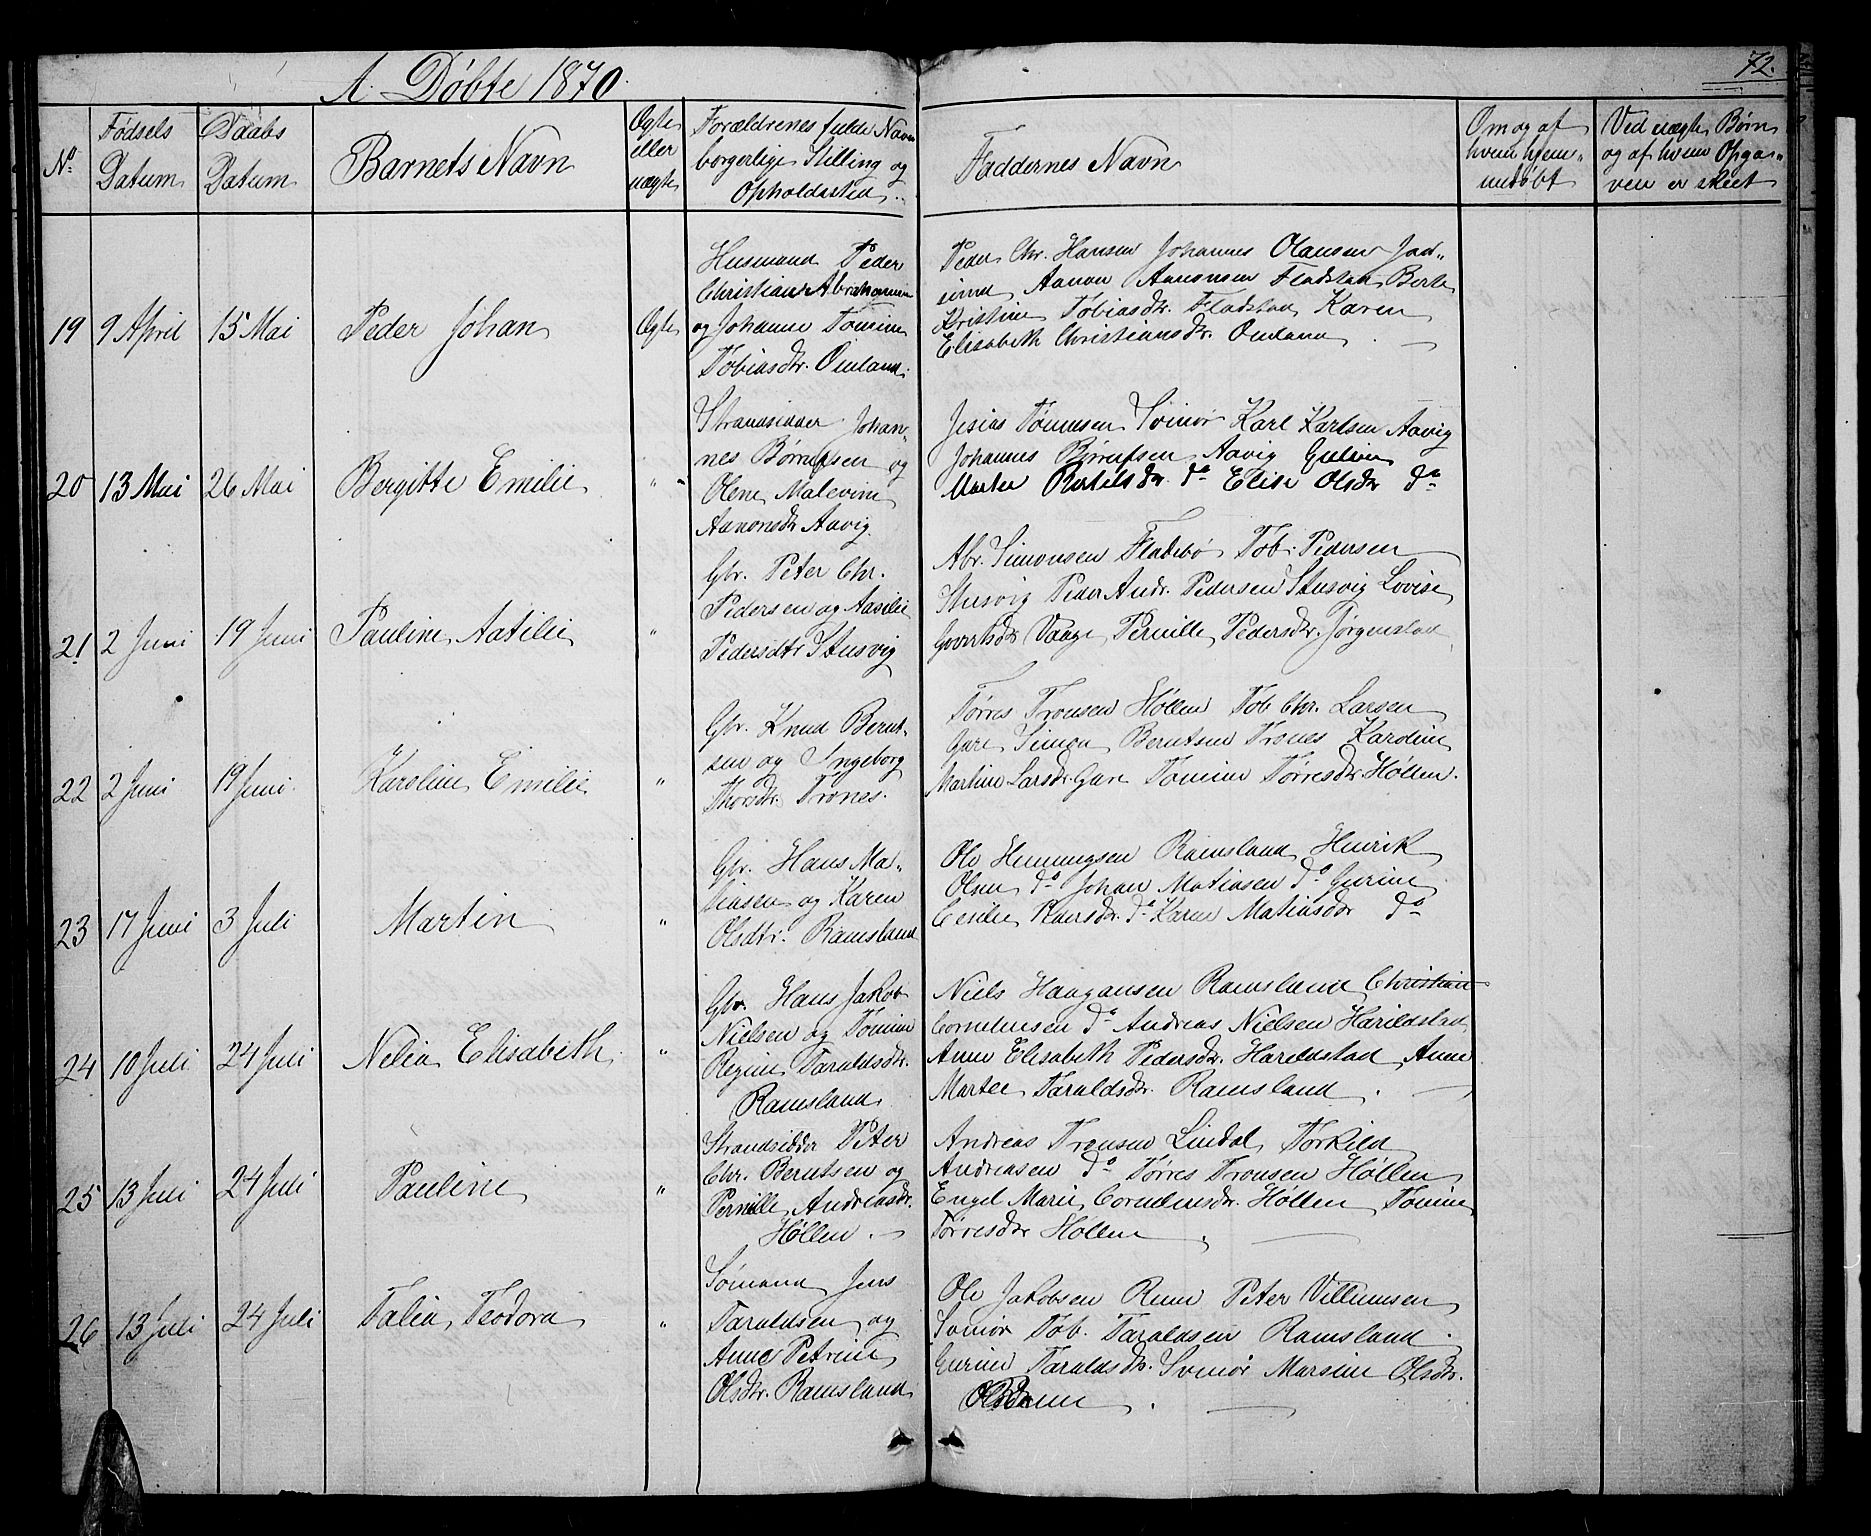 72.
A. Døbte 1870.
No
Fødsels Datum
Daabs Datum
Barnets Navn
Ægte eller uægte
Forældrenes fulde Navn borgerlige Stilling og Opholdssted
Faddernes Navn
Om og af hvem hjem- medøbt
Ved uægte Børn og af hvem Opga- ven er skeet
19 9 April 15 Mai Peder Johan Ægte
Husmand Peder
Christian Abrahamsen
og Johanne Tomine
Tobiasdtr. Øinland.
Peder Chr. Hansen Johannes Olausen
Aanon Aanonsen Fladstad Berte
Kristine Tobiasdtr. Fladstad Karen
Elisabeth Christiansdtr. Øinland
20 13 Mai 26 Mai Bergitte Emilie "
Strandsidder Johan-
nes Børrufsen og
Olene Malevine
Aanonsdtr Aavig.
Jesias Tønnesen Svinør Karl Karlsen Aavig
Johannes Børrufsen Aavig Guline
Marte Bertelsdtr. do Elise Olsdtr do
21 2 Juni 19 Juni Pauline Aatilie "
Gbr. Peter Chr.
Pedersen og Aasilie
Pedersdtr Stusvig
Abr. Simonsen Fladebø Tob. Pedersen
Stusvig Peder Andr. Pedersen Stusvig Lovise
Govertsdtr Vaage Pernille Pedersdtr. Jørgenstad
22 2 Juni 19 Juni. Karoline Emilie "
Gbr. Knud Bernt-
sen og Ingeborg
Thorsdtr. Trones.
Tørres Tronsen Høllen Tob Chr. Larsen
Gare Simon Berntsen Trones Karoline
Martine Larsdtr Gare Tomine Tørresdtr Høllen.
23 17 Juni 3 Juli Martin "
Gbr. Hans Ma-
tiasen og Karen
Olsdtr. Ramsland
Ole Henningsen Ramsland Henrik
Olsen do Johan Matiasen do Gurine
Cesilie Hansdtr. do Karen Matiasdtr do
24 10 Juli 24 Juli Nelia Elisabeth "
Gbr. Hans Jakob
Nielsen og Tomine
Regine Taraldsdtr.
Ramsland
Niels Haagansen Ramsland Christian
Corneliusen do Andreas Nielsen Harildstad
Anne Elisabeth Pedersdtr. Harildstad Anne
Martee Taraldsdtr. Ramsland.
25 13 Juli 24 Juli Pauline "
Strandsidder Peter
Chr. Berntsen og
Pernille Andreasdtr.
Høllen.
Andreas Tronsen Lindal Torkild
Andreasen do Tørres Tronsen Høllen
Engel Marie Corneliusdtr. Høllen Tomine
Tørresdtr Høllen
26 13 Juli 24 Juli Talia Teodora "
Sømand Jens
Taraldsen og
Anne Petrine
Olsdtr. Ramsland
Ole Jakobsen Rum Peter Villumsen
Svinør Tob. Taraldsen Ramsland.
Gurine Taraldsdtr. Svinør Marsine Olsdtr.